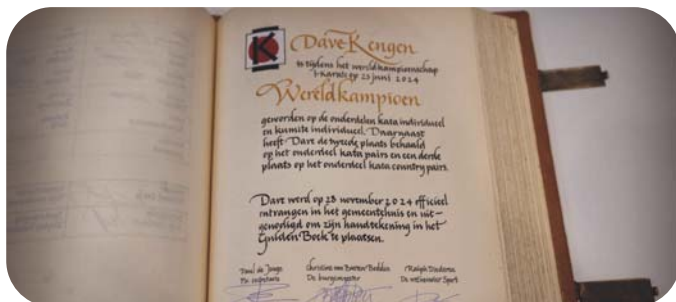 K
Dave Kengen
is tijdens het wereldkampioenschap
I-Karate op 23 juni 2024
Wereldkampioen
geworden op de onderdelen kata individueel
en kumite individueel. Daarnaast
heeft Dave de tweede plaats behaald
op het onderdeel kata pairs en een derde
plaats op het onderdeel kata country pairs.
Dave werd op 28 november 2024 officieel
ontvangen in het gemeentehuis en uit-
genodigd om zijn handtekening in het
Gulden Boek te plaatsen.
Paul de Jonge Christine van Basten Boddin Ralph Diederen
De secretaris De burgemeester De wethouder Sport